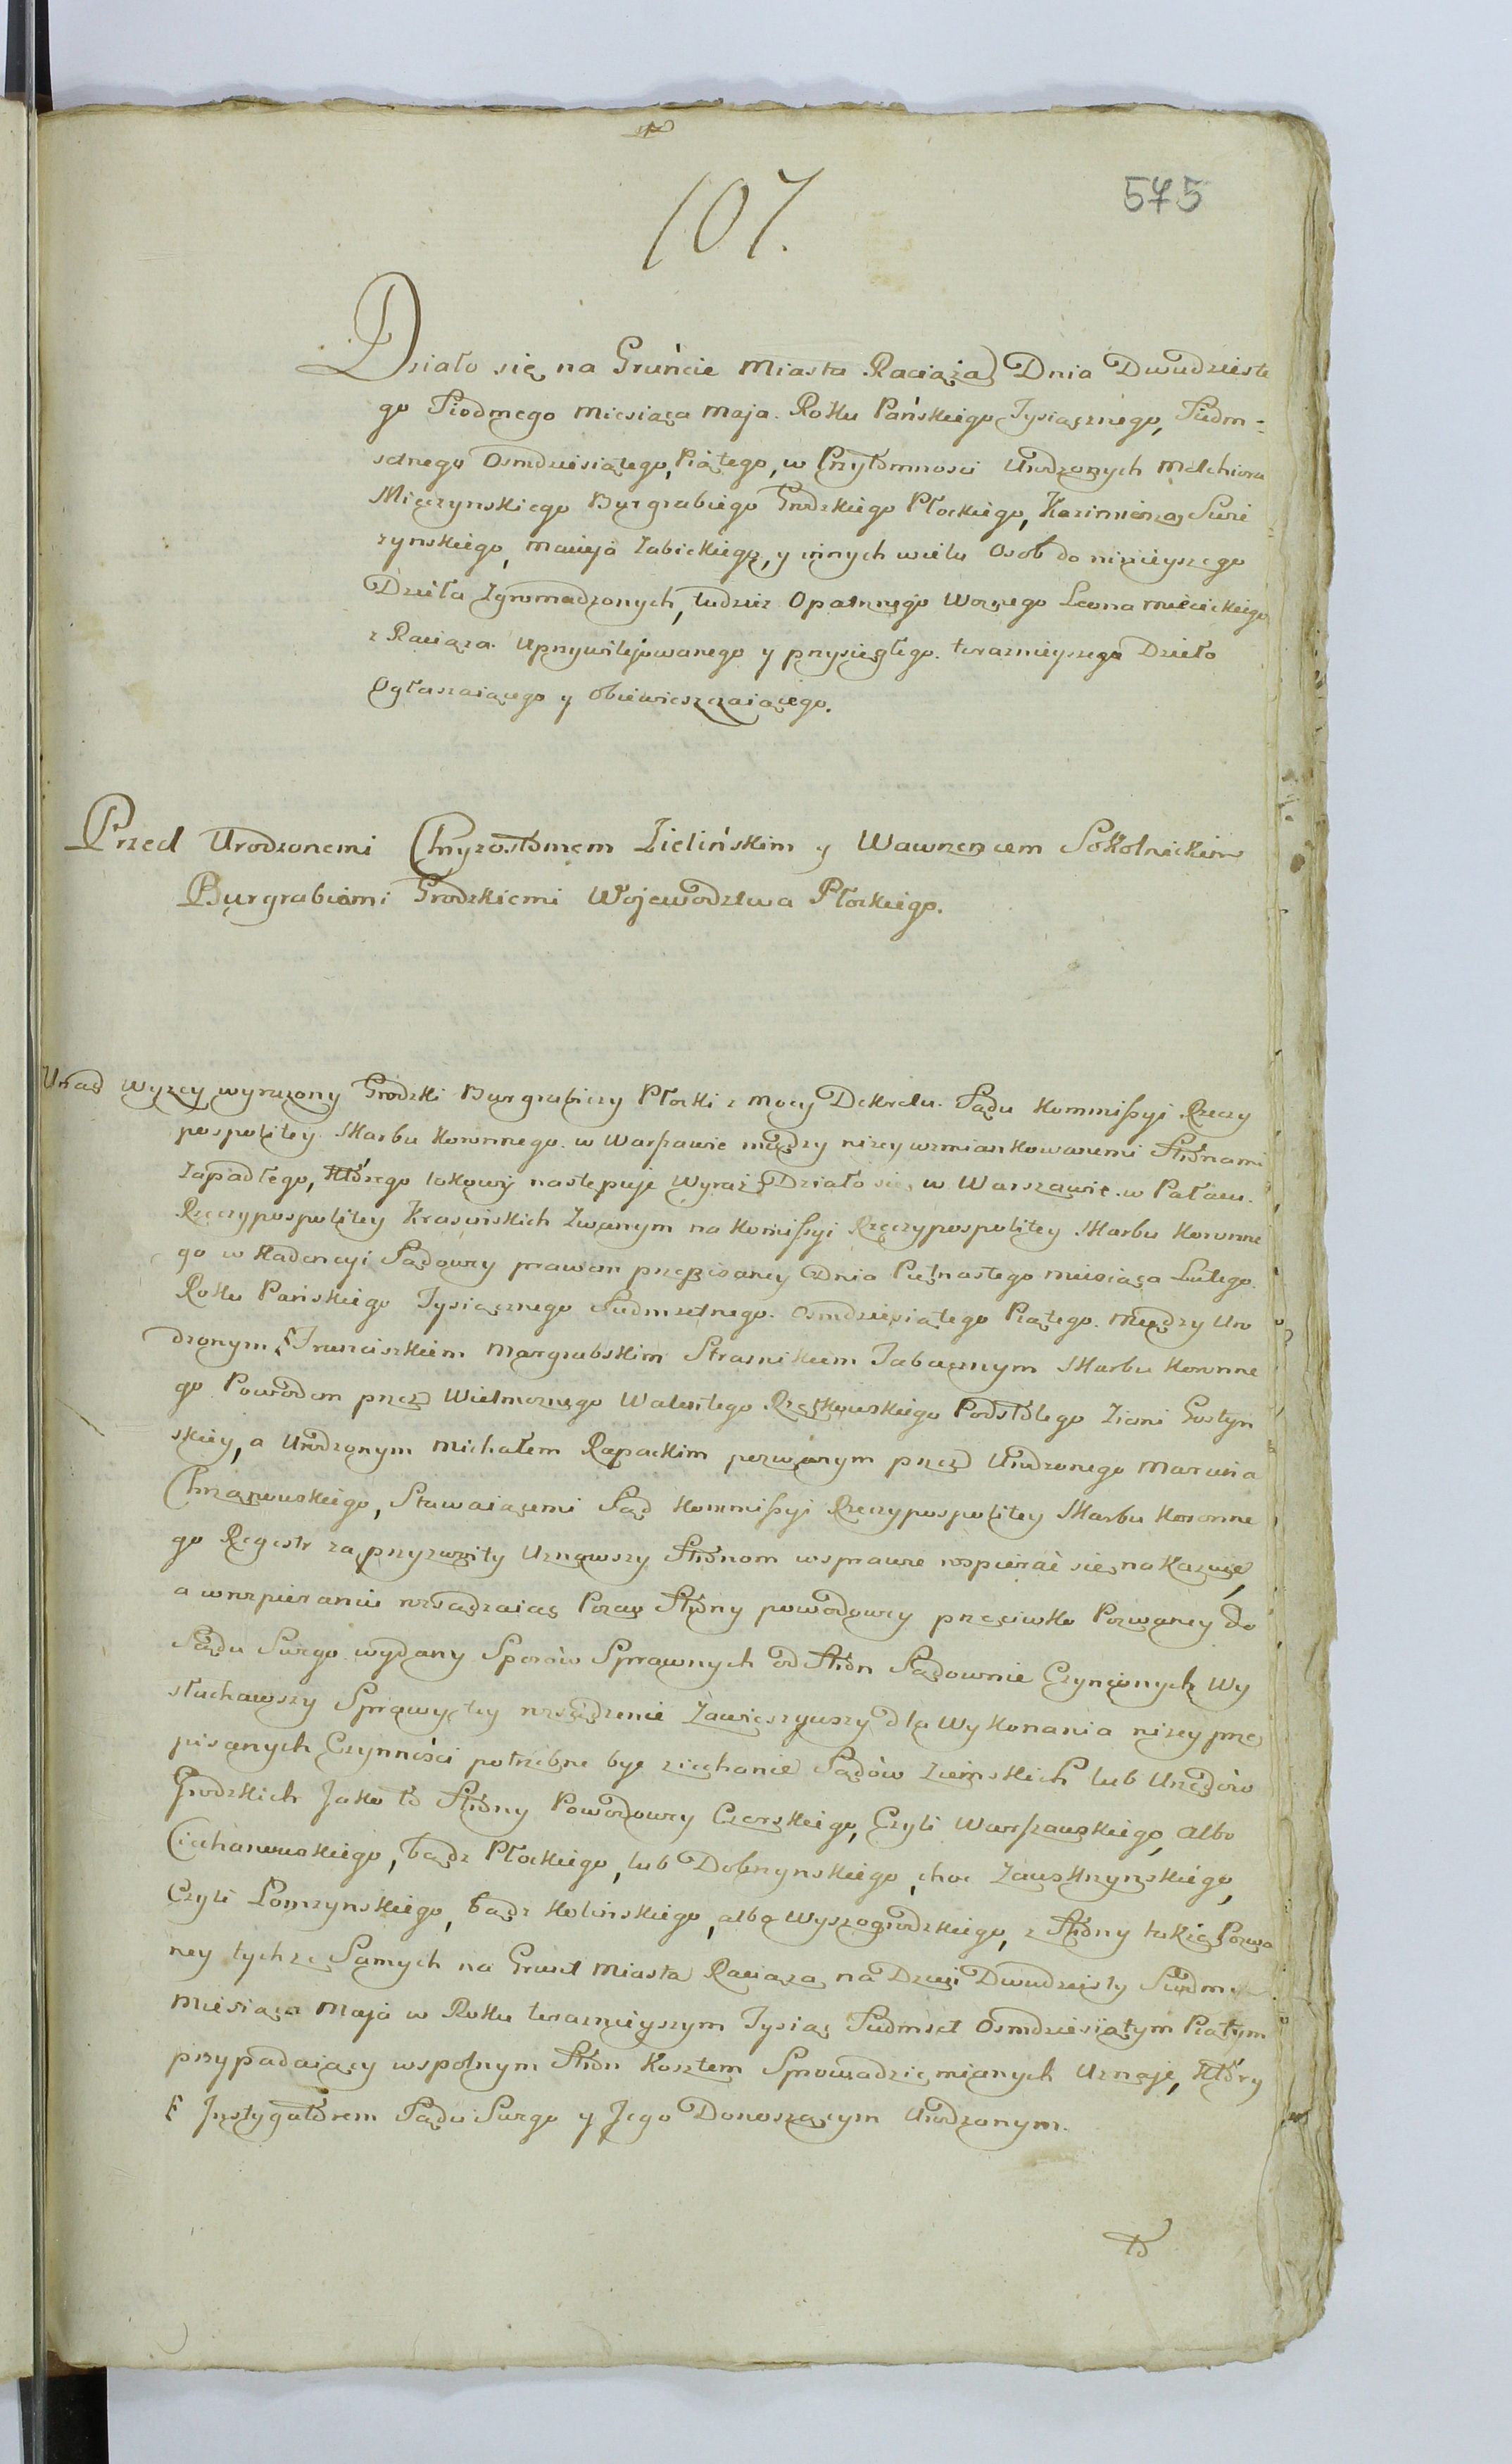 107.
575
Działo się na Gruńcie Miasta Raciąża Dnia Dwudzieste
go Siodmego Miesiąca Maja. Roku Pańskiego Tysiącznego, Siedm=
setnego Osmdziesiątego, Piątego, w Przytomnosci Urodzonych Melchiora
Mięczynskiego Burgrabiego Grodzkiego Płockiego, Kazimierza Sierz
zynskiego, Macieja Zabickiego, y innych wielu Osob do ninieyszego
Dzieła Zgromadzonych, tudziez Opatrznego Woznego Leona
z Raciąza Uprzywilejowanego y przysięgłego terazniejszego Dzieło
Ogłaszaiącego y Obwieszczaiącego.
Przed Urodzonemi Chryzostomem Zielińskim y Wawrzencem Sokolnickim
Burgrabiami Grodzkiemi Wojewodztwa Płockiego.
Urząd wyzey wyrażony Grodzki Burgrabiczy Płocki z mocy Dekretu Sądu Kommissyi Rzeczy
pospolitey Skarbu Koronnego w Warszawie między nizey wzmiankowanemi Stronami
Zapadłego, Którego takowy nastepuje Wyraz Działo się w Warszawie w Pałacu
Rzeczypospolitey Krasińskich Zwanym na Komissyi Rzeczypospolitey Skarbu Koronne
go w Kadencyi Sądowey prawem przepisaney Dnia Piętnastego miesiąca Lutego
Roku Pańskiego Tysiącznego Siedmsetnego Osmdziesiątego Piątego. Między Uro
dzonym Franciszkiem Margrabskim Straznikiem Tabacznym Skarbu Koronne
go Powodem przez Wielmoznego Walentego Rzęszkowskiego Podstolego Ziemi Gostyn
skiey, a Urodzonym Michałem Rapackim pozwanym przez Urodzonego Marcina
Chrzanowskiego, Stawaiącemi Sąd Kommissyi Rzeczypospolitey Skarbu Koronne
go Regestr za przyzwoity Uznawszy Stronom w sprawie rospierać się nakazuje,
a w rozpieraniu rozsądzaiąc Pozew Strony powodowey przeciwko Pozwaney do
Sądu Swego wydany Sporów Sprawnych od Stron Sądownie Czynionych Wy
słuchawszy Sprawy tey rozsądzenie Zawiesiwszy dla Wykonania nizey prze
pisanych Czynności potrzebne byc ziechanie Sądów Ziemskich lub Urzędów
Grodzkich Jako to Strony Powodowey Czerskiego, Czyli Warszawskiego, albo
Ciechanowskiego, bądz Płockiego, lub Dobrzynskiego, choc Zawskrzynskiego,
Czyli Łomzynskiego, bądz Kolinskiego, albo Wyszogrodzkiego, z Strony także Pozwa
ney tychze Samych na Grunt Miasta Raciąza na Dzień Dwudziesty Siedmy
Miesiąca Maja w Roku terazniejszym Tysiąc Siedmset Osmdziesiątym Piątym
przypadaiący wspolnym Stron Kosztem Sprowadzic mianych Uznaje, Który
z Instygatorem Sądu Swego y Jego Donoszącym Urodzonym.